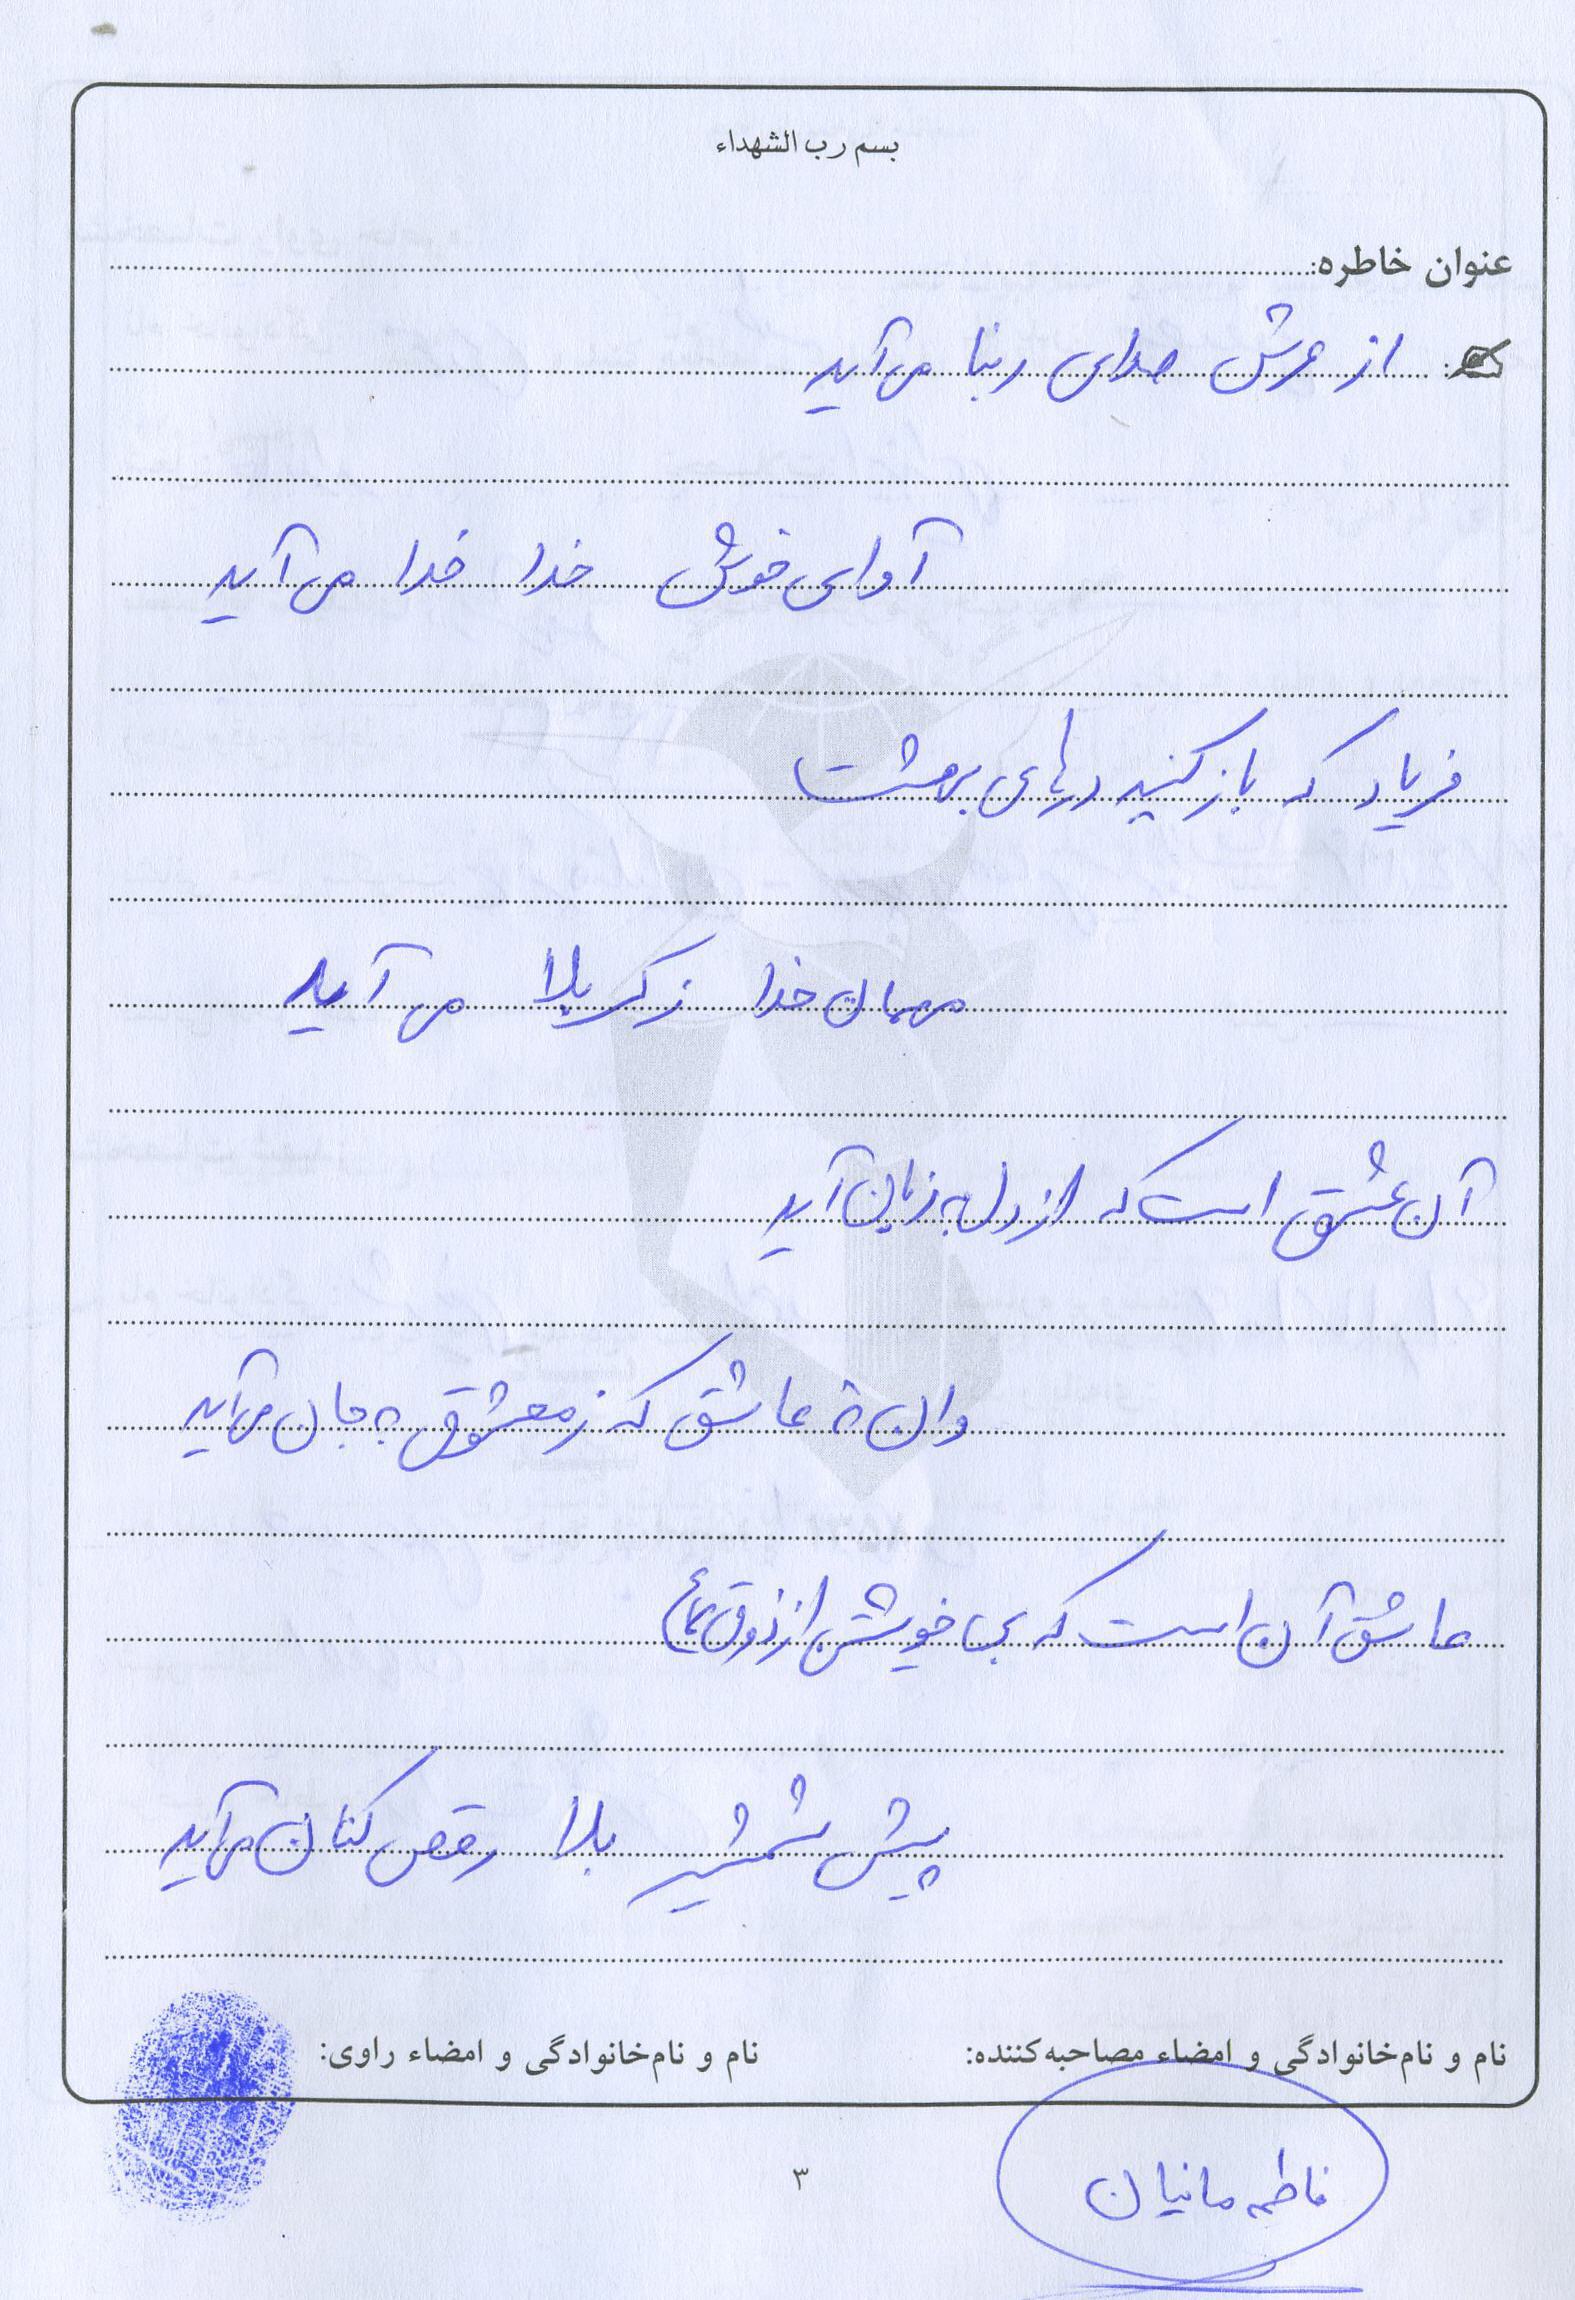 بسم رب الشهداء
عنوان خاطره:
از عرش صدای ربنا می‌آید
آوای خوش خدا خدا می‌آید
فریاد که باز کنید درهای بهشت
مهمان خدا ز کربلا می‌آید
آن عشق است که از دل به زبان آید
وان نه عاشق که ز معشوق به جان می‌آید
عاشق آن است که بی خویش از ذوق سماع
پیش شمشیر بلا رقص کنان می‌آید
نام و نام‌خانوادگی و امضاء مصاحبه‌کننده: نام و نام‌خانوادگی و امضاء راوی:
فاطمه مانیان
۳